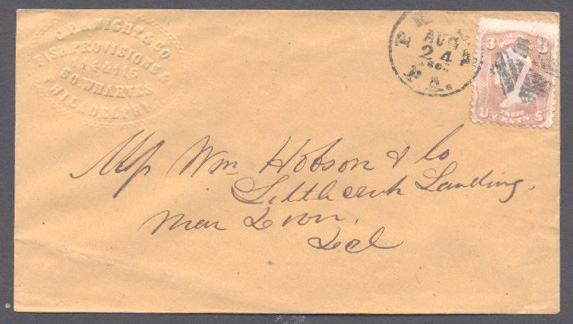 C. D. KNIGHT & CO.
FISH, PROVISIONS
SO. WHARVES
PHILADELPHIA
PHILA
AUG
24
PA.
3 3
U THREE S
CENTS
Mssrs Wm Hobson & Co
Little creek Landing,
near Dover,
Del